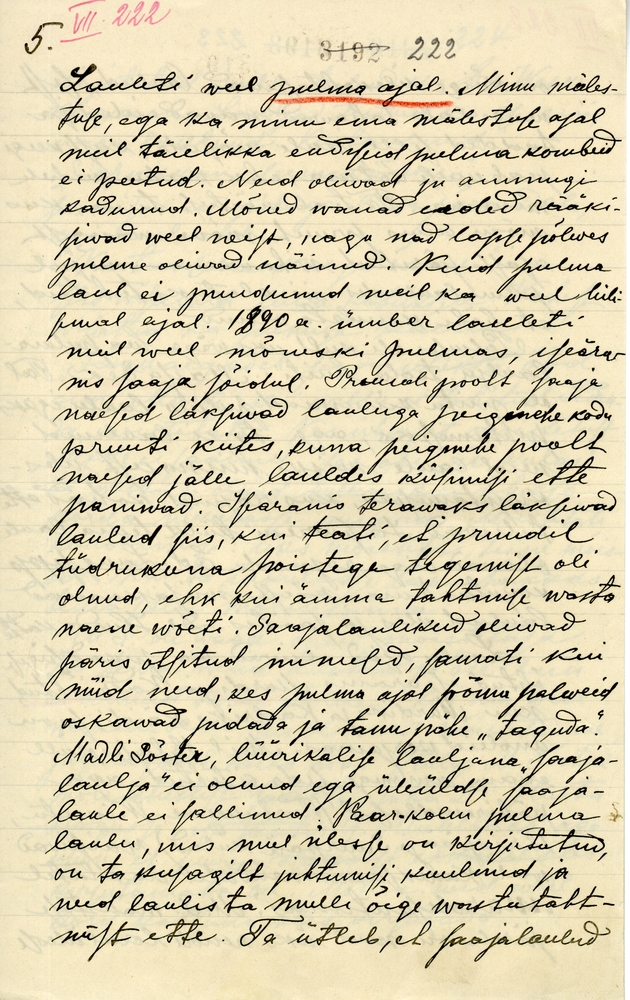 5. VII 222
3192 222
Lauleti weel pulma ajal. Minu mäles-
tuse, ega ka minu ema mälestuse ajal
meil täielikka endiseid pulma kombeid
ei peetud. Need oliwad ju ammugi
kadunud. Mõned wanad rääki-
siwad weel neist, nagu nad lapse põlwes
pulme oliwad näinud. Kuid pulma
laul ei puudunud meil ka weel hili-
semal ajal. 1890 a. ümber lauleti
meil weel mõneski pulmas, iseära-
nis saaja sõidul. Pruudi poolt saaja
naesed läksiwad lauluga peigmehe kodu
pruuti kiites, kuna peigmehe poolt
naesed jälle lauldes küsimisi ette
paniwad. Iseäranis terawaks läksiwad
laulud siis, kui teati, et pruudil
tüdrukuna poistega tegemist oli
olnud, ehk kui ämma tahtmise wasta
naene wõeti. Saajalaulikud oliwad
päris otsitud inimesed, samati kui
nüid need, kes pulma ajal sõime palweid
oskawad pidada ja tanu pähe „taguda".
Madli Söster, lüürikalise lauljana „saaja-
laulja" ei olnud ega üleüldse saaja-
laule ei sallinud. Paar-kolm pulma
laulu, mis mul ülesse on kirjutatud,
on ta kusagilt juhtumisi kuulnud ja
need laulis ta mulle õige wastutaht-
mist ette. Ta ütleb, et saajalaulud